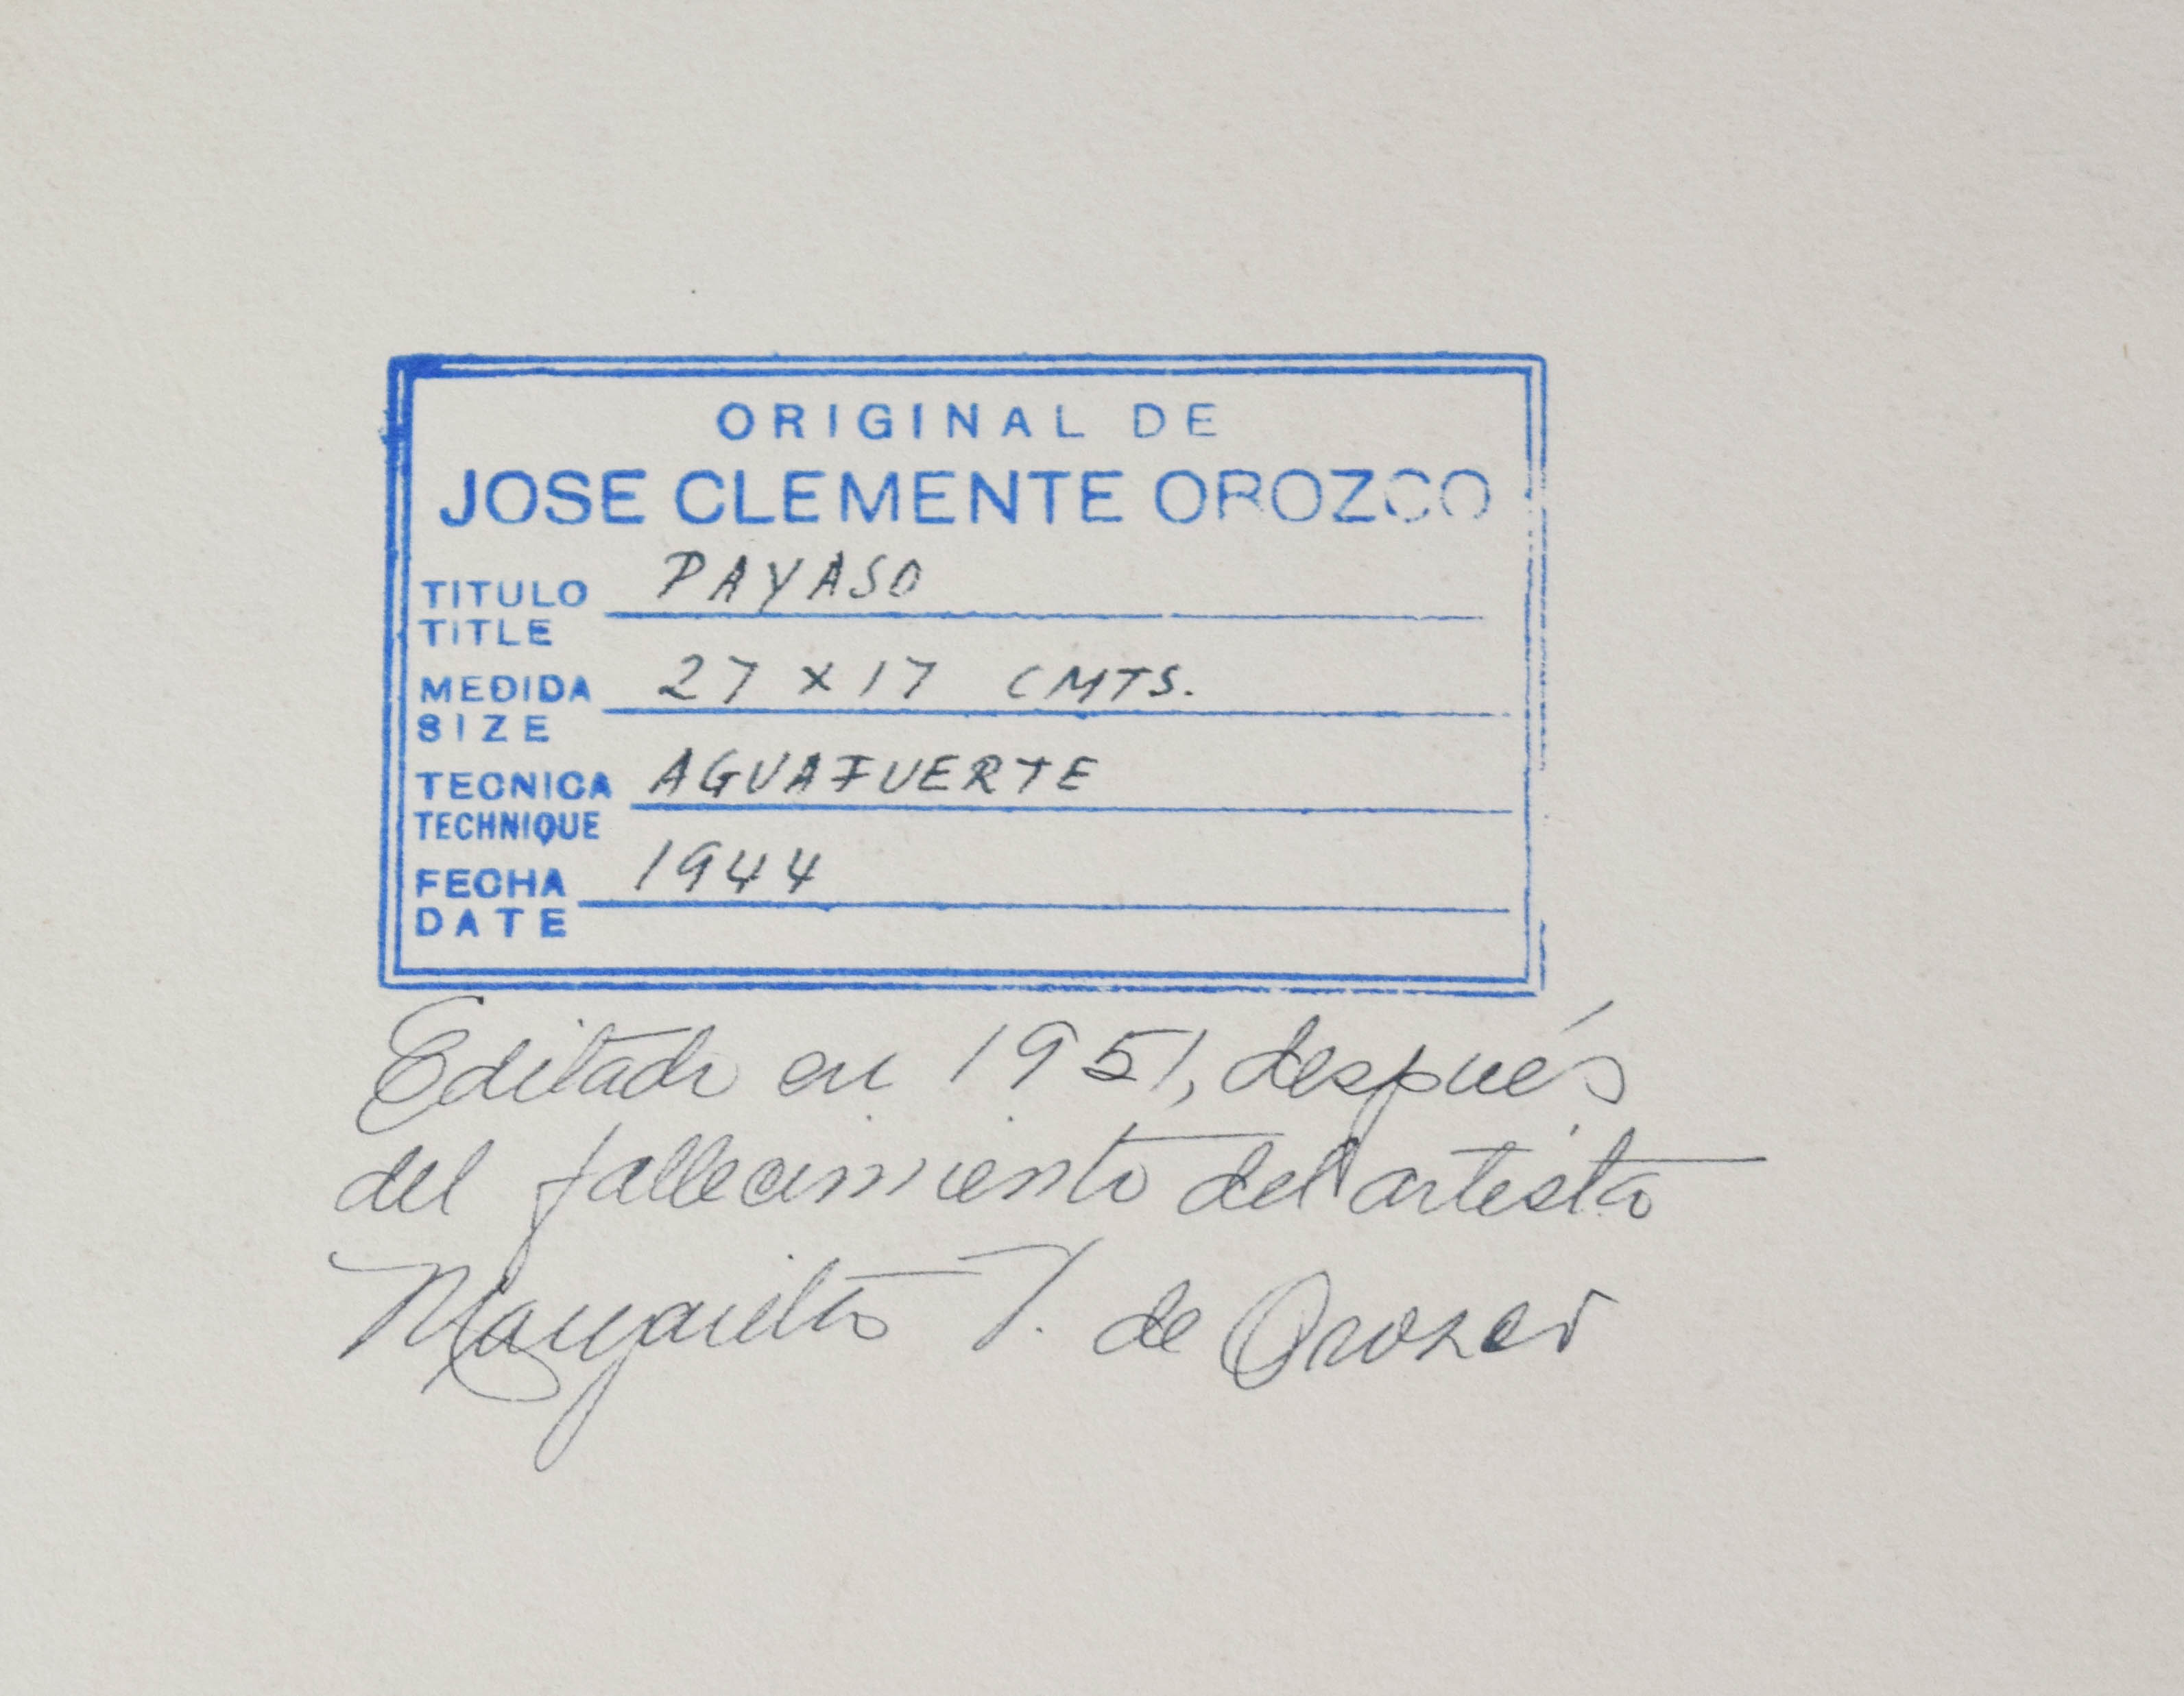 ORIGINAL DE
JOSE CLEMENTE OROZCO
TITULO PAYASO
TITLE
MEDIDA 27 x 17 CMTS.
SIZE
TECNICA AGUAFUERTE
TECHNIQUE
FECHA 1944
DATE
Editado en 1951, después
del fallecimiento del artista
Margarita V. de Orozco